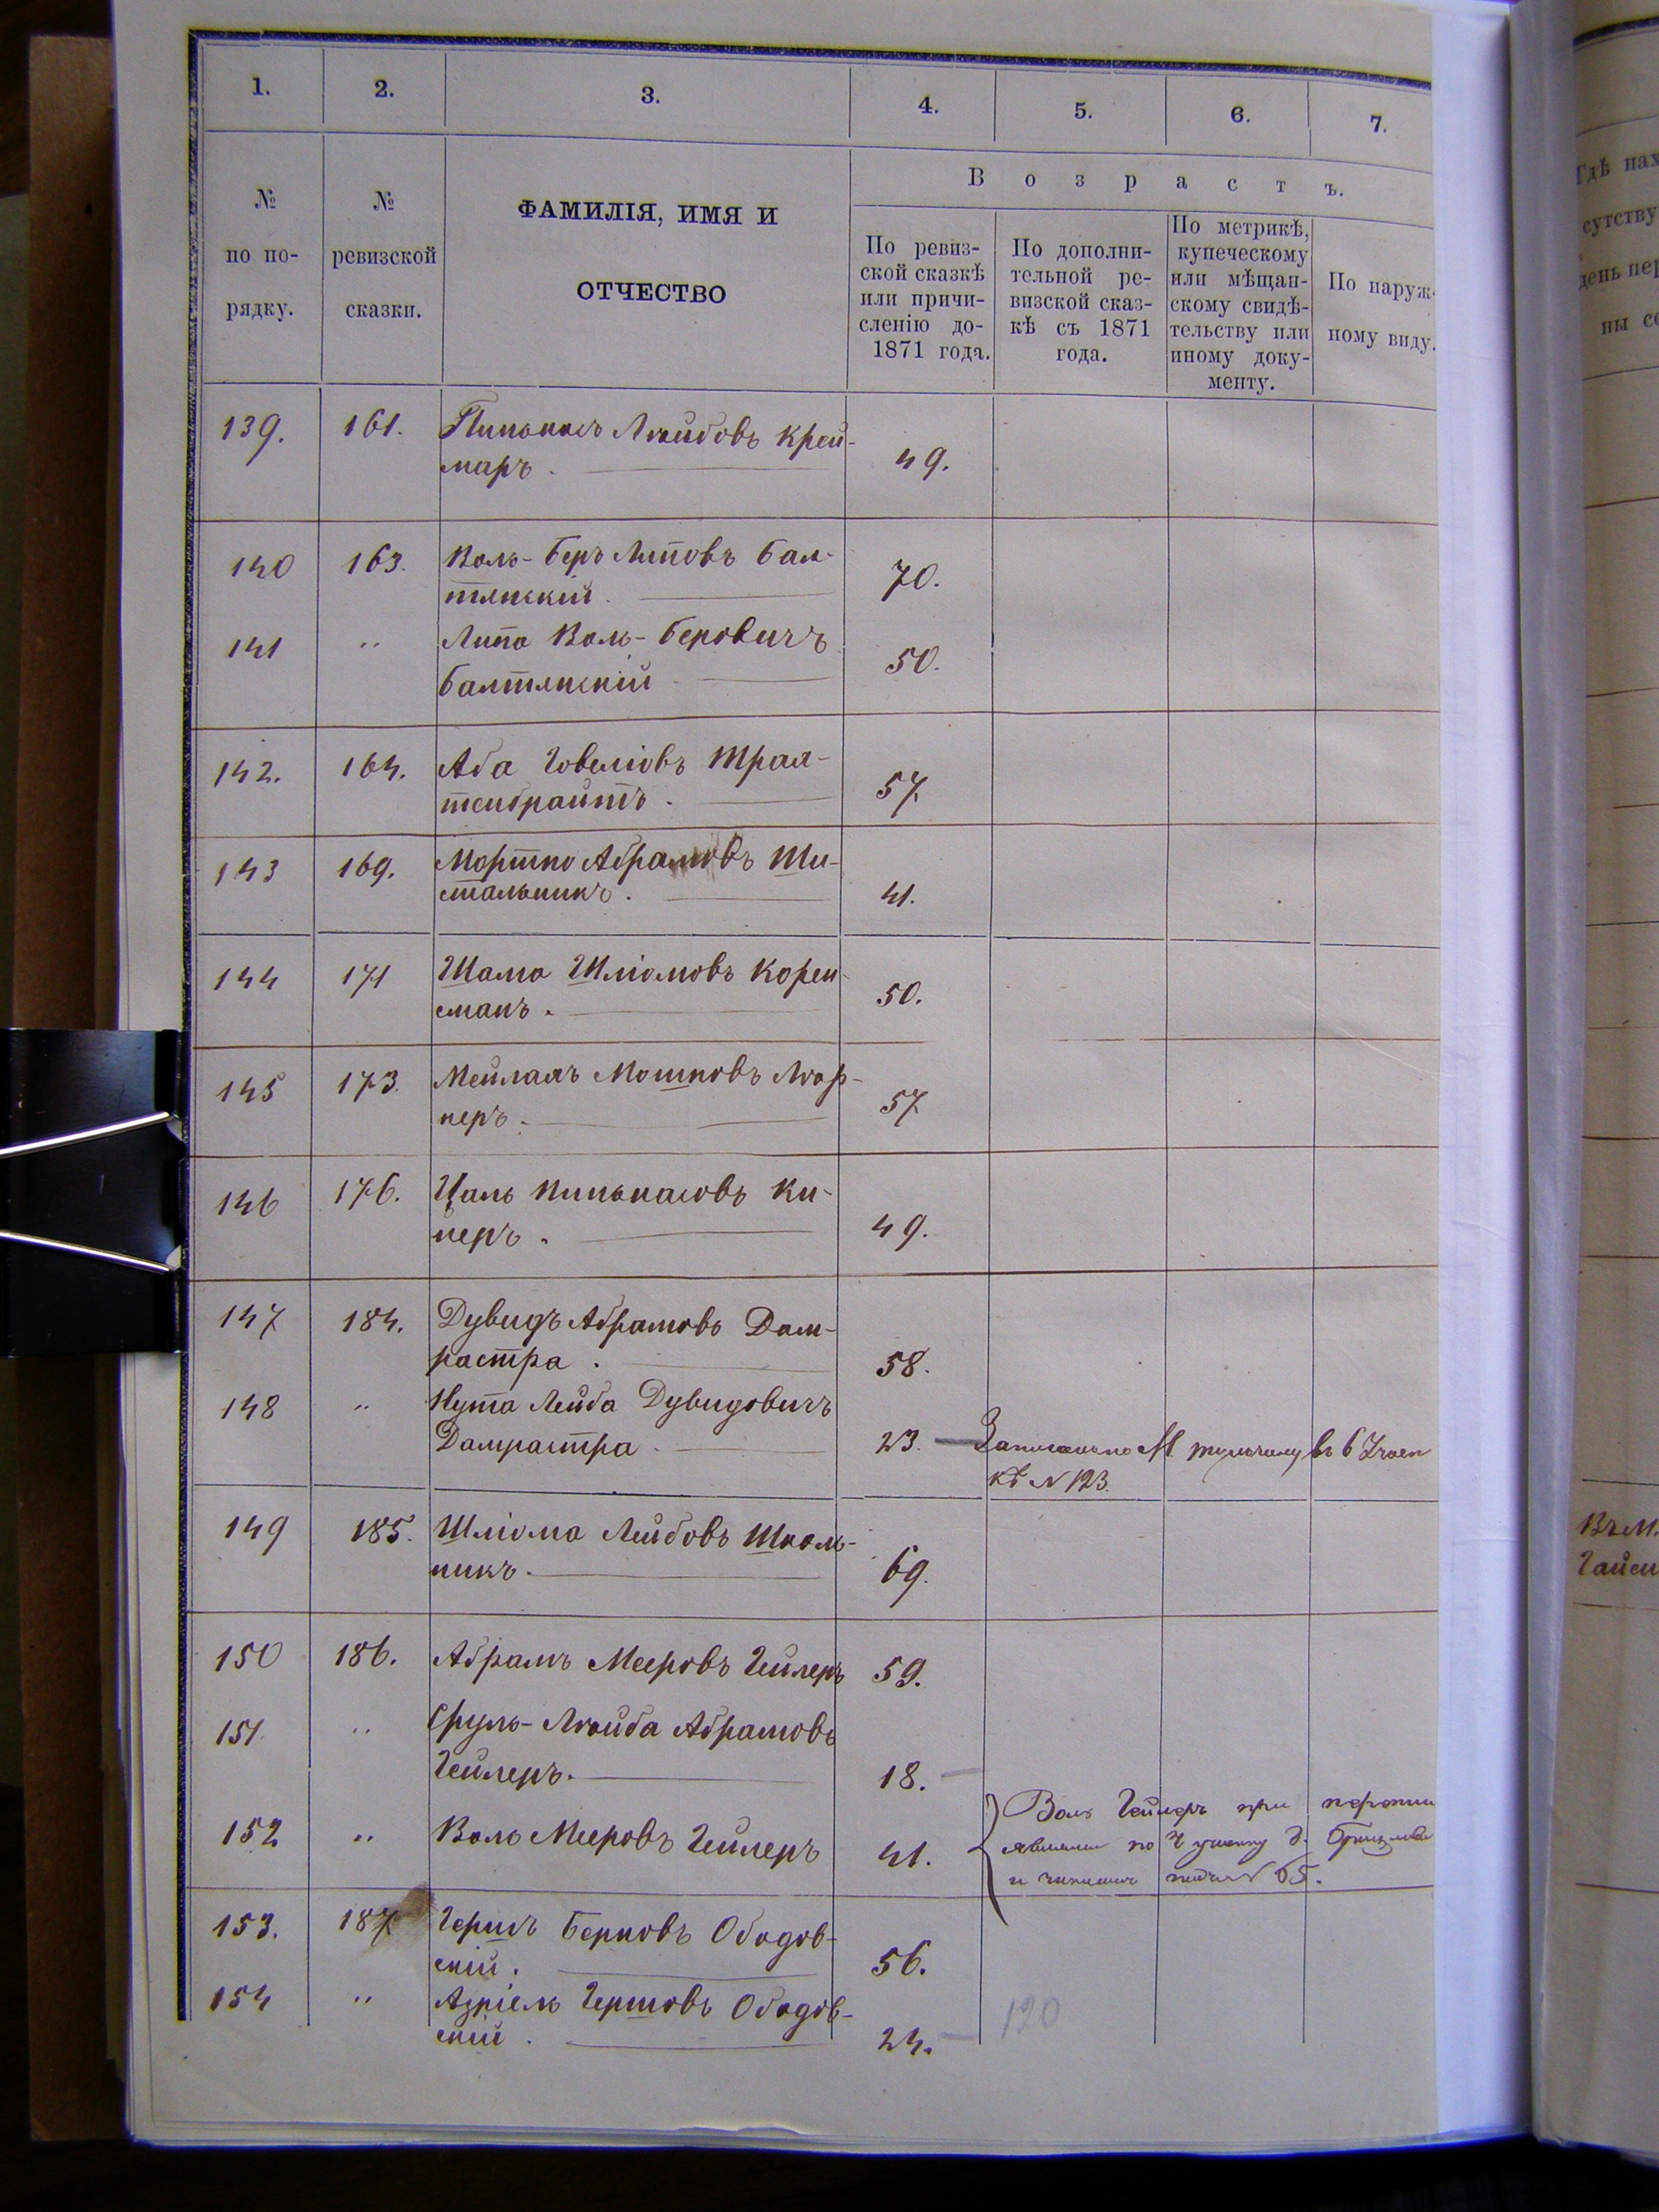 1. 2. 3. 4. 5. 6. 7.
№ по порядку.
№ ревизской сказки.
ФАМИЛІЯ, ИМЯ И
ОТЧЕСТВО
Возрастъ.
По ревиз-
ской сказкѣ
или причи-
сленію до-
1871 года.
По дополни-
тельной ре-
визской сказ-
кѣ съ 1871
года.
По метрикѣ,
купеческому
или мѣщан-
скому свидѣ-
тельству или
иному доку-
менту.
По наруж-
ному виду.
139. 161. Пинькасъ Лейбовъ Крей-
маръ. 49.
140 163. Воль-Беръ Липовъ Бал-
тянскій. 70.
141 " Липа Воль-Беровичъ
Балтянскій 50.
142. 164. Аба Іовеліовъ Трая-
тенбраитъ. 57.
143 169. Мортко Абрамовъ Ши-
стальникъ. 41.
144 171 Шама Шліомовъ Корен-
сманъ. 50.
145 173. Мейлахъ Мошковъ
неръ. 57
146 176. Цаль Пинькасовъ Ки-
перъ. 49.
147 184. Дувидъ Абрамовъ Дам-
растра. 58.
148 " Нута Лейба Дувидовичъ
Дамрастра. 23. Записанъ по М. Тульчину въ 6
кѣ N 123.
149 185. Шліома Лейбовъ Школь-
никъ. 69.
150 186. Абрамъ Мееровъ Гейлеръ 59.
151. " Сруль-Лейба Абрамовъ
Гейлеръ. 18.
152 " Воль Мееровъ Гейлеръ 41.
Воль Гейлеръ при
по участку г.
и записанъ подъ N 65.
153. 187 Гершъ Берковъ Ободов-
скій. 56.
154 " Азріель Гершовъ Ободов-
скій. 24.
120
Гдѣ нах
сутству
день пер
ны со
Въ М.
Гайси